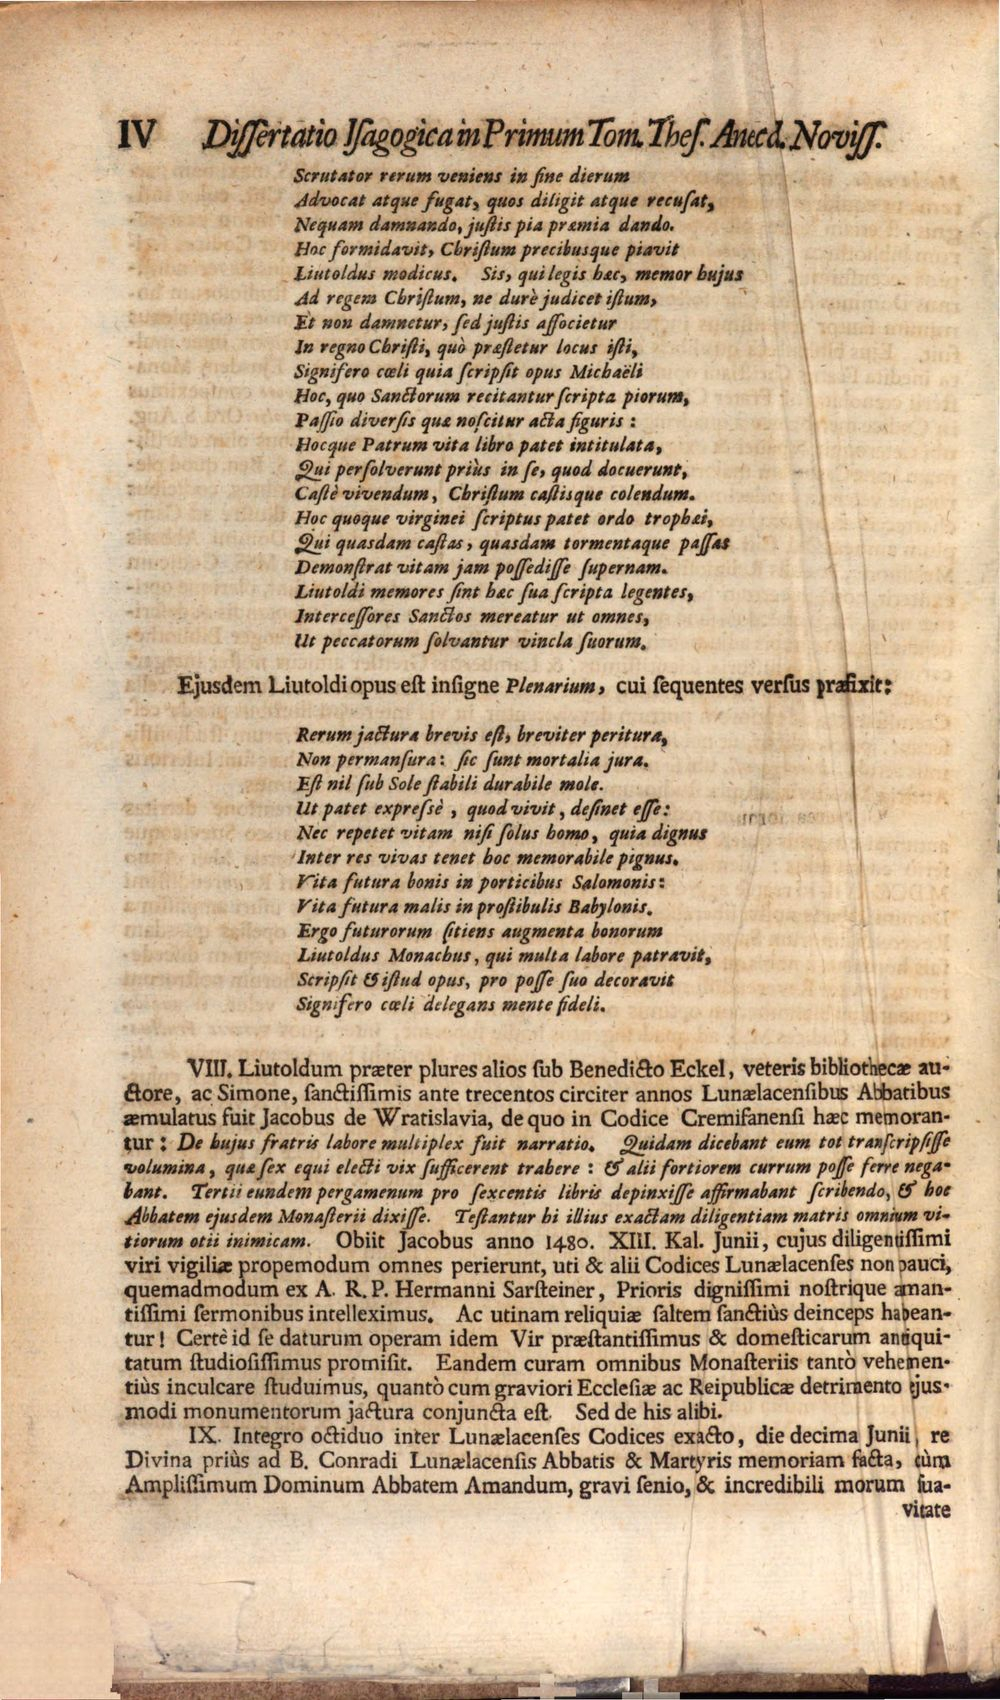 IV Dissertatio Isagogica in Primum Tom. Thes. Anecd. Noviss.
Scrutator rerum veniens in fine dierum
Advocat atque fugat, quos diligit atque recusat,
Nequam damnando, justis pia præmia dando.
Hoc formidavit, Christum precibusque piavit
Liutoldus modicus. Sis, qui legis hæc, memor hujus
Ad regem Christum, ne durè judicet istum,
Et non damnetur, sed justis associetur
In regno Christi, quò præstetur locus isti,
Signifero cœli quia scripsit opus Michaëli
Hoc, quo Sanctorum recitantur scripta piorum,
Passio diversis quæ noscitur acta figuris:
Hocque Patrum vita libro patet intitulata,
Qui persolverunt priùs in se, quod docuerunt,
Castè vivendum, Christum castisque colendum.
Hoc quoque virginei scriptus patet ordo trophæi,
Qui quasdam castas, quasdam tormentaque passas
Demonstrat vitam jam possedisse supernam.
Liutoldi memores sint hæc sua scripta legentes,
Intercessores Sanctos mereatur ut omnes,
Ut peccatorum solvantur vincla suorum.
Ejusdem Liutoldi opus est insigne Plenarium, cui sequentes versus præfixit:
Rerum jactura brevis est, breviter peritura,
Non permansura: sic sunt mortalia jura.
Est nil sub Sole stabili durabile mole.
Ut patet expressè, quod vivit, desinet esse:
Nec repetet vitam nisi solus homo, quia dignus
Inter res vivas tenet hoc memorabile pignus.
Vita futura bonis in porticibus Salomonis:
Vita futura malis in prostibulis Babylonis.
Ergo futurorum sitiens augmenta bonorum
Liutoldus Monachus, qui multa labore patravit,
Scripsit & istud opus, pro posse suo decoravit
Signifero cœli delegans mente fideli.
VIII. Liutoldum præter plures alios sub Benedicto Eckel, veteris bibliothecæ au-
ctore, ac Simone, sanctissimis ante trecentos circiter annos Lunælacensibus Abbatibus
æmulatus fuit Jacobus de Wratislavia, de quo in Codice Cremifanensi hæc memoran-
tur: De hujus fratris labore multiplex fuit narratio. Quidam dicebant eum tot transcripsisse
volumina, quæ sex equi electi vix sufficerent trahere: & alii fortiorem currum posse ferre nega-
bant. Tertii eundem pergamenum pro sexcentis libris depinxisse affirmabant scribendo, & hoc
Abbatem ejusdem Monasterii dixisse. Testantur hi illius exactam diligentiam matris omnium vi-
tiorum otii inimicam. Obiit Jacobus anno 1480. XIII. Kal. Junii, cujus diligentissimi
viri vigiliæ propemodum omnes perierunt, uti & alii Codices Lunælacenses non pauci,
quemadmodum ex A. R. P. Hermanni Sarsteiner, Prioris dignissimi nostrique aman-
tissimi sermonibus intelleximus. Ac utinam reliquiæ saltem sanctiùs deinceps habean-
tur! Certè id se daturum operam idem Vir præstantissimus & domesticarum antiqui-
tatum studiosissimus promisit. Eandem curam omnibus Monasteriis tantò vehemen-
tiùs inculcare studuimus, quantò cum graviori Ecclesiæ ac Reipublicæ detrimento ejus-
modi monumentorum jactura conjuncta est. Sed de his alibi.
IX. Integro octiduo inter Lunælacenses Codices exacto, die decima Junii, re
Divina priùs ad B. Conradi Lunælacensis Abbatis & Martyris memoriam facta, cùm
Amplissimum Dominum Abbatem Amandum, gravi senio, & incredibili morum sua-
vitate